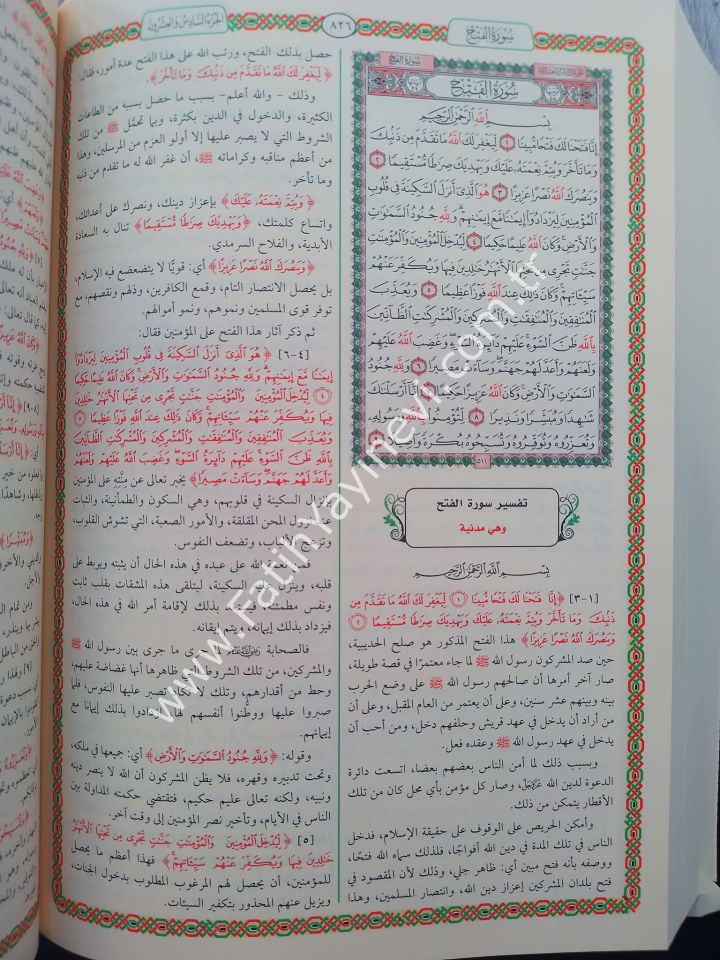 سورة الفتح
٨٢٦
الجزء السادس والعشرون
سورة الفتح
بِسْمِ اللَّهِ الرَّحْمَٰنِ الرَّحِيمِ
إِنَّا فَتَحْنَا لَكَ فَتْحًا مُّبِينًا ١ لِّيَغْفِرَ لَكَ اللَّهُ مَا تَقَدَّمَ مِن ذَنبِكَ
وَمَا تَأَخَّرَ وَيُتِمَّ نِعْمَتَهُ عَلَيْكَ وَيَهْدِيَكَ صِرَاطًا مُّسْتَقِيمًا ٢
وَيَنصُرَكَ اللَّهُ نَصْرًا عَزِيزًا ٣ هُوَ الَّذِي أَنزَلَ السَّكِينَةَ فِي قُلُوبِ
الْمُؤْمِنِينَ لِيَزْدَادُوا إِيمَانًا مَّعَ إِيمَانِهِمْ وَلِلَّهِ جُنُودُ السَّمَاوَاتِ
وَالْأَرْضِ وَكَانَ اللَّهُ عَلِيمًا حَكِيمًا ٤ لِّيُدْخِلَ الْمُؤْمِنِينَ وَالْمُؤْمِنَاتِ
جَنَّاتٍ تَجْرِي مِن تَحْتِهَا الْأَنْهَارُ خَالِدِينَ فِيهَا وَيُكَفِّرَ عَنْهُمْ
سَيِّئَاتِهِمْ وَكَانَ ذَٰلِكَ عِندَ اللَّهِ فَوْزًا عَظِيمًا ٥ وَيُعَذِّبَ
الْمُنَافِقِينَ وَالْمُنَافِقَاتِ وَالْمُشْرِكِينَ وَالْمُشْرِكَاتِ الظَّانِّينَ
بِاللَّهِ ظَنَّ السَّوْءِ عَلَيْهِمْ دَائِرَةُ السَّوْءِ وَغَضِبَ اللَّهُ عَلَيْهِمْ
وَلَعَنَهُمْ وَأَعَدَّ لَهُمْ جَهَنَّمَ وَسَاءَتْ مَصِيرًا ٦ وَلِلَّهِ جُنُودُ
السَّمَاوَاتِ وَالْأَرْضِ وَكَانَ اللَّهُ عَزِيزًا حَكِيمًا ٧ إِنَّا أَرْسَلْنَاكَ
شَاهِدًا وَمُبَشِّرًا وَنَذِيرًا ٨ لِّتُؤْمِنُوا بِاللَّهِ وَرَسُولِهِ
وَتُعَزِّرُوهُ وَتُوَقِّرُوهُ وَتُسَبِّحُوهُ بُكْرَةً وَأَصِيلًا ٩
٥١١
تفسير سورة الفتح
وهي مدنية
بِسْمِ اللَّهِ الرَّحْمَٰنِ الرَّحِيمِ
[١-٣] ﴿إِنَّا فَتَحْنَا لَكَ فَتْحًا مُّبِينًا ١ لِّيَغْفِرَ لَكَ اللَّهُ مَا تَقَدَّمَ مِن
ذَنبِكَ وَمَا تَأَخَّرَ وَيُتِمَّ نِعْمَتَهُ عَلَيْكَ وَيَهْدِيَكَ صِرَاطًا مُّسْتَقِيمًا ٢
وَيَنصُرَكَ اللَّهُ نَصْرًا عَزِيزًا﴾ هذا الفتح المذكور هو صلح الحديبية،
حين صد المشركون رسول الله ﷺ لما جاء معتمرًا في قصة طويلة،
صار آخر أمرها أن صالحهم رسول الله ﷺ على وضع الحرب
بينه وبينهم عشر سنين، وعلى أن يعتمر من العام المقبل، وعلى أن
من أراد أن يدخل في عهد قريش وحلفهم دخل، ومن أحب أن
يدخل في عهد رسول الله ﷺ وعقده فعل.
وبسبب ذلك لما أمن الناس بعضهم بعضا، اتسعت دائرة
الدعوة لدين الله عز وجل، وصار كل مؤمن بأي محل كان من تلك
الأقطار يتمكن من ذلك.
وأمكن الحريص على الوقوف على حقيقة الإسلام، فدخل
الناس في تلك المدة في دين الله أفواجًا، فلذلك سماه الله فتحًا،
ووصفه بأنه فتح مبين أي: ظاهر جلي، وذلك لأن المقصود في
فتح بلدان المشركين إعزاز دين الله، وانتصار المسلمين، وهذا
حصل بذلك الفتح، ورتب الله على هذا الفتح عدة أمور، فقال:
﴿لِّيَغْفِرَ لَكَ اللَّهُ مَا تَقَدَّمَ مِن ذَنبِكَ وَمَا تَأَخَّرَ﴾
وذلك – والله أعلم– بسبب ما حصل بسببه من الطاعات
الكثيرة، والدخول في الدين بكثرة، وبما تحمَّل ﷺ من تلك
الشروط التي لا يصبر عليها إلا أولو العزم من المرسلين، وهذا
من أعظم مناقبه وكراماته ﷺ، أن غفر الله له ما تقدم من ذنبه
وما تأخر.
﴿وَيُتِمَّ نِعْمَتَهُ عَلَيْكَ﴾ بإعزاز دينك، ونصرك على أعدائك،
واتساع كلمتك، ﴿وَيَهْدِيَكَ صِرَاطًا مُّسْتَقِيمًا﴾ تنال به السعادة
الأبدية، والفلاح السرمدي.
﴿وَيَنصُرَكَ اللَّهُ نَصْرًا عَزِيزًا﴾ أي: قويًا لا يتضعضع فيه الإسلام،
بل يحصل الانتصار التام، وقمع الكافرين، وذلهم ونقصهم، مع
توفر قوى المسلمين ونموهم، ونمو أموالهم.
ثم ذكر آثار هذا الفتح على المؤمنين فقال:
[٤-٦] ﴿هُوَ الَّذِي أَنزَلَ السَّكِينَةَ فِي قُلُوبِ الْمُؤْمِنِينَ لِيَزْدَادُوا
إِيمَانًا مَّعَ إِيمَانِهِمْ وَلِلَّهِ جُنُودُ السَّمَاوَاتِ وَالْأَرْضِ وَكَانَ اللَّهُ عَلِيمًا حَكِيمًا
٤ لِّيُدْخِلَ الْمُؤْمِنِينَ وَالْمُؤْمِنَاتِ جَنَّاتٍ تَجْرِي مِن تَحْتِهَا الْأَنْهَارُ خَالِدِينَ
فِيهَا وَيُكَفِّرَ عَنْهُمْ سَيِّئَاتِهِمْ وَكَانَ ذَٰلِكَ عِندَ اللَّهِ فَوْزًا عَظِيمًا ٥
وَيُعَذِّبَ الْمُنَافِقِينَ وَالْمُنَافِقَاتِ وَالْمُشْرِكِينَ وَالْمُشْرِكَاتِ الظَّانِّينَ
بِاللَّهِ ظَنَّ السَّوْءِ عَلَيْهِمْ دَائِرَةُ السَّوْءِ وَغَضِبَ اللَّهُ عَلَيْهِمْ وَلَعَنَهُمْ
وَأَعَدَّ لَهُمْ جَهَنَّمَ وَسَاءَتْ مَصِيرًا﴾ يخبر تعالى عن منَّته على المؤمنين
بإنزال السكينة في قلوبهم، وهي السكون والطمأنينة، والثبات
عند نزول المحن المقلقة، والأمور الصعبة، التي تشوش القلوب،
وتزعج الألباب، وتضعف النفوس.
فمن نعمة الله على عبده في هذه الحال أن يثبته ويربط على
قلبه، وينزل عليه السكينة، ليتلقى هذه المشقات بقلب ثابت
ونفس مطمئنة، فيستعد بذلك لإقامة أمر الله في هذه الحال،
فيزداد بذلك إيمانه، ويتم إيقانه.
فالصحابة رضي الله عنهم لما جرى ما جرى بين رسول الله ﷺ
والمشركين، من تلك الشروط التي ظاهرها أنها غضاضة عليهم،
وحط من أقدارهم، وتلك لا تكاد تصبر عليها النفوس، فلما
صبروا عليها ووطَّنوا أنفسهم لها، ازدادوا بذلك إيمانا مع
إيمانهم.
وقوله: ﴿وَلِلَّهِ جُنُودُ السَّمَاوَاتِ وَالْأَرْضِ﴾ أي: جميعها في ملكه،
وتحت تدبيره وقهره، فلا يظن المشركون أن الله لا ينصر دينه
ونبيه، ولكنه تعالى عليم حكيم، فتقتضي حكمته المداولة بين
الناس في الأيام، وتأخير نصر المؤمنين إلى وقت آخر.
[٥] ﴿لِّيُدْخِلَ الْمُؤْمِنِينَ وَالْمُؤْمِنَاتِ جَنَّاتٍ تَجْرِي مِن تَحْتِهَا الْأَنْهَارُ
خَالِدِينَ فِيهَا وَيُكَفِّرَ عَنْهُمْ سَيِّئَاتِهِمْ﴾ فهذا أعظم ما يحصل
للمؤمنين، أن يحصل لهم المرغوب المطلوب بدخول الجنات،
ويزيل عنهم المحذور بتكفير السيئات.
www.FatihYayinevi.com.tr